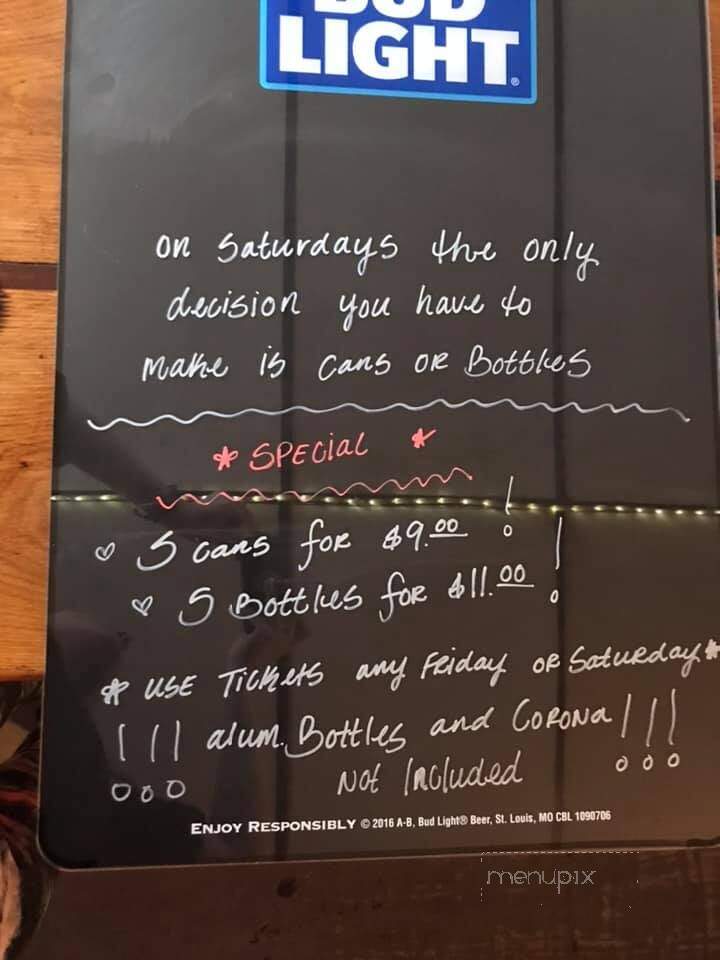 BUD
LIGHT®
on Saturdays the only
decision you have to
make is cans or Bottles
* SPECiAL *
♡ 5 cans for $9.00 !
♡ 5 Bottles for $11.00 !
* USE Tickets any Friday or Saturday *
!!! alum. Bottles and Corona !!!
Not Included
ENJOY RESPONSIBLY © 2016 A-B, Bud Light® Beer, St. Louis, MO CBL 1090706
menupix